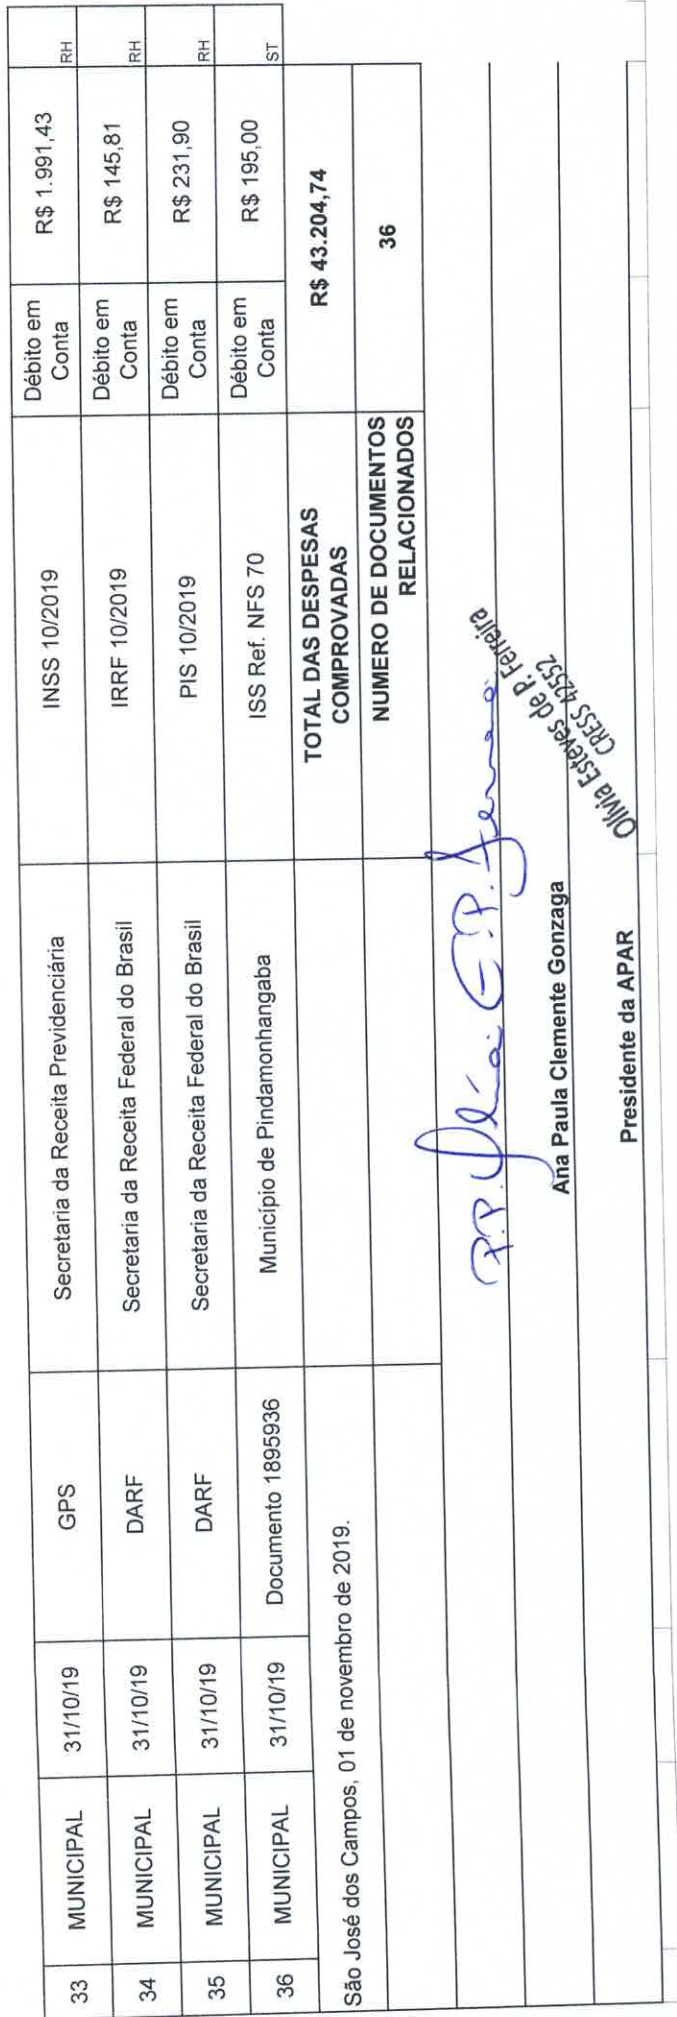 33 MUNICIPAL 31/10/19 GPS Secretaria da Receita Previdenciária INSS 10/2019 Débito em Conta R$ 1.991,43 RH
34 MUNICIPAL 31/10/19 DARF Secretaria da Receita Federal do Brasil IRRF 10/2019 Débito em Conta R$ 145,81 RH
35 MUNICIPAL 31/10/19 DARF Secretaria da Receita Federal do Brasil PIS 10/2019 Débito em Conta R$ 231,90 RH
36 MUNICIPAL 31/10/19 Documento 1895936 Município de Pindamonhangaba ISS Ref. NFS 70 Débito em Conta R$ 195,00 ST
São José dos Campos, 01 de novembro de 2019.
TOTAL DAS DESPESAS
COMPROVADAS
R$ 43.204,74
NUMERO DE DOCUMENTOS
RELACIONADOS
36
P.P. Olívia E. P. Ferreira
Olívia Esteves de P. Ferreira
CRESS 42552
Ana Paula Clemente Gonzaga
Presidente da APAR